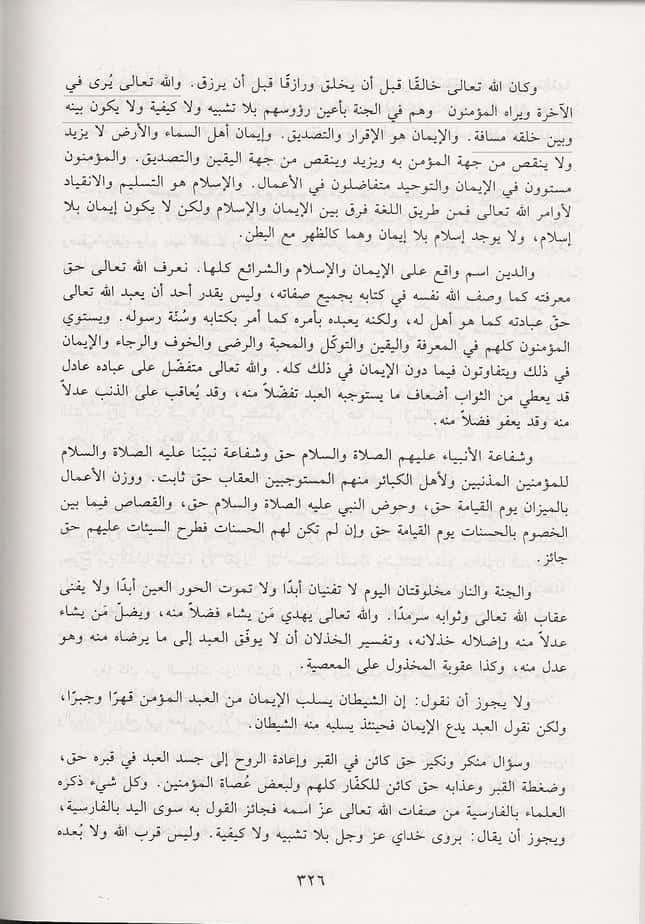 وكان الله تعالى خالقًا قبل أن يخلق ورازقًا قبل أن يرزق. والله تعالى يُرى في
الآخرة ويراه المؤمنون وهم في الجنة بأعين رؤوسهم بلا تشبيه ولا كيفية ولا يكون بينه
وبين خلقه مسافة. والإيمان هو الإقرار والتصديق. وإيمان أهل السماء والأرض لا يزيد
ولا ينقص من جهة المؤمن به ويزيد وينقص من جهة اليقين والتصديق. والمؤمنون
مستوون في الإيمان والتوحيد متفاضلون في الأعمال. والإسلام هو التسليم والانقياد
لأوامر الله تعالى فمن طريق اللغة فرق بين الإيمان والإسلام ولكن لا يكون إيمان بلا
إسلام، ولا يوجد إسلام بلا إيمان وهما كالظهر مع البطن.
والدين اسم واقع على الإيمان والإسلام والشرائع كلها. نعرف الله تعالى حق
معرفته كما وصف الله نفسه في كتابه بجميع صفاته، وليس يقدر أحد أن يعبد الله تعالى
حقّ عبادته كما هو أهل له، ولكنه يعبده بأمره كما أمر بكتابه وسُنّة رسوله. ويستوي
المؤمنون كلهم في المعرفة واليقين والتوكّل والمحبة والرضى والخوف والرجاء والإيمان
في ذلك ويتفاوتون فيما دون الإيمان في ذلك كله. والله تعالى متفضّل على عباده عادل
قد يعطي من الثواب أضعاف ما يستوجبه العبد تفضّلاً منه، وقد يُعاقب على الذنب عدلاً
منه وقد يعفو فضلاً منه.
وشفاعة الأنبياء عليهم الصلاة والسلام حق وشفاعة نبيّنا عليه الصلاة والسلام
للمؤمنين المذنبين ولأهل الكبائر منهم المستوجبين العقاب حق ثابت. ووزن الأعمال
بالميزان يوم القيامة حق، وحوض النبي عليه الصلاة والسلام حق، والقصاص فيما بين
الخصوم بالحسنات يوم القيامة حق وإن لم تكن لهم الحسنات فطرح السيئات عليهم حق
جائز.
والجنة والنار مخلوقتان اليوم لا تفنيان أبدًا ولا تموت الحور العين أبدًا ولا يفنى
عقاب الله تعالى وثوابه سرمدًا. والله تعالى يهدي مَن يشاء فضلاً منه، ويضلّ مَن يشاء
عدلاً منه وإضلاله خذلانه، وتفسير الخذلان أن لا يوفّق العبد إلى ما يرضاه منه وهو
عدل منه، وكذا عقوبة المخذول على المعصية.
ولا يجوز أن نقول: إن الشيطان يسلب الإيمان من العبد المؤمن قهرًا وجبرًا،
ولكن نقول العبد يدع الإيمان فحينئذ يسلبه منه الشيطان.
وسؤال منكر ونكير حق كائن في القبر وإعادة الروح إلى جسد العبد في قبره حق،
وضغطة القبر وعذابه حق كائن للكفّار كلهم ولبعض عُصاة المؤمنين. وكل شيء ذكره
العلماء بالفارسية من صفات الله تعالى عزّ اسمه فجائز القول به سوى اليد بالفارسية،
ويجوز أن يقال: بروى خداي عز وجل بلا تشبيه ولا كيفية. وليس قرب الله ولا بُعده
٣٢٦